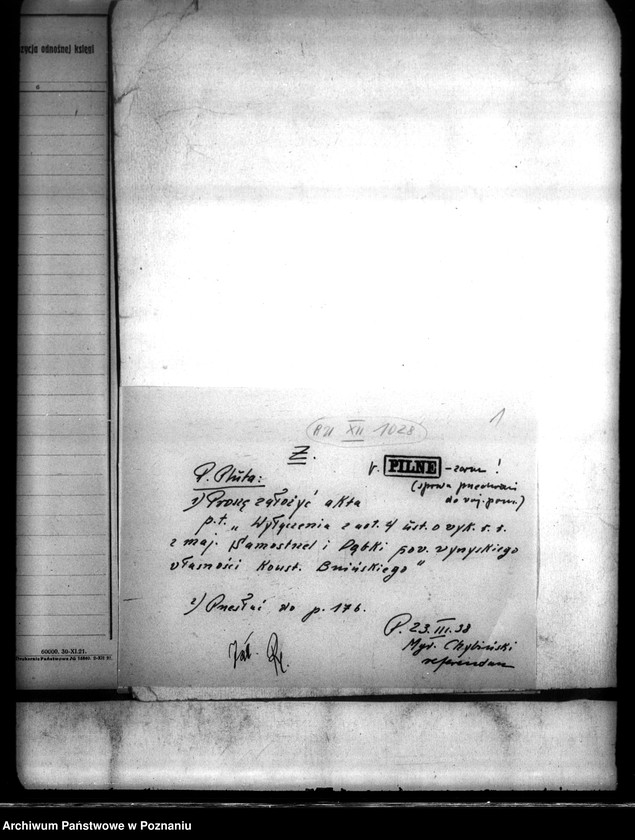 zycja odnośnej księgi
AU XII 1028
1
Z.
V. PILNE - zaraz!
P. Pluta:
(sprawa
do woj. pozn.)
1) Proszę założyć akta
p.t. „Wyłączenia z art. 4 ust. o wyk. r. r.
z maj. Samostrzel i Dąbki pow. wyrzyskiego
własności Konst. Bnińskiego"
2) Przesłać do p. 176.
P. 23.III.38
Mgr. Chybiński
referendarz
Zał.
60000. 30-XI.21.
Drukarnia Państwowa
Archiwum Państwowe w Poznaniu